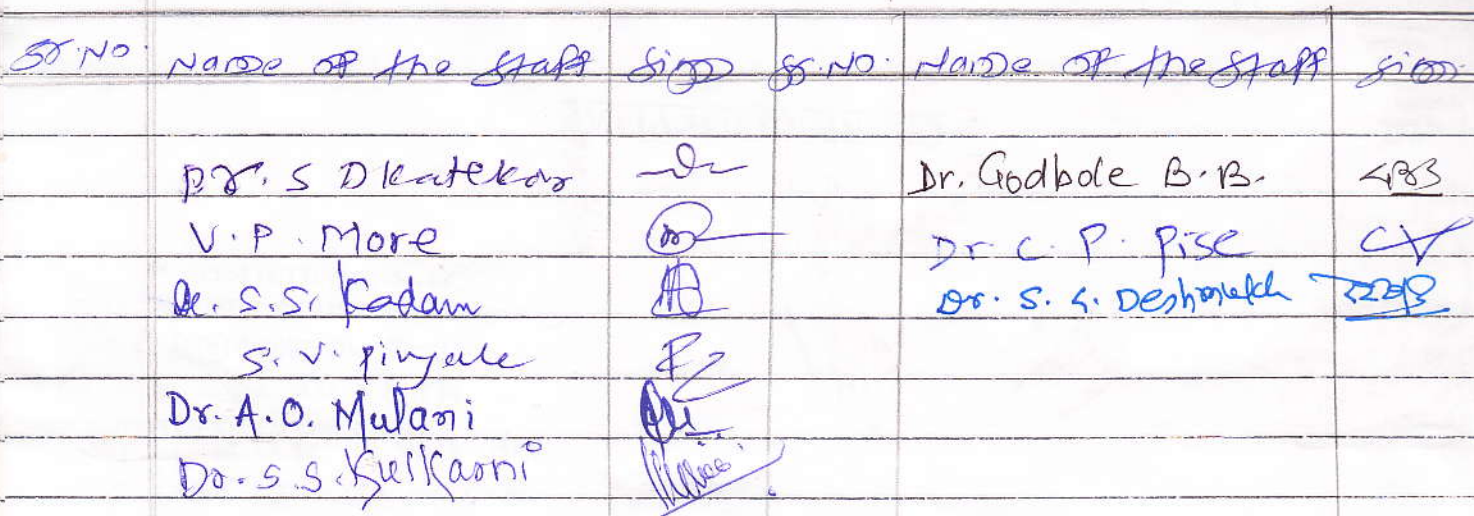 Sr. No. Name of the Staff Sign Sr. No. Name of the Staff Sign
Dr. S D Katekar Dr. Godbole B. B.
V. P. More Dr. C. P. Pise
Dr. S. S. Kadam Dr. S. S. Deshmukh
S. V. Pingale
Dr. A. O. Mulani
Dr. S. S. Kulkarni